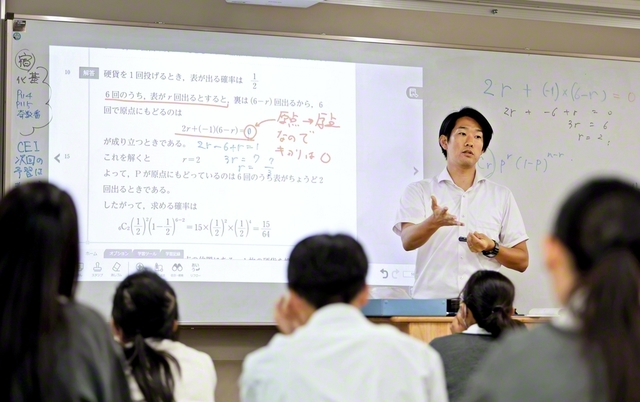 宿
化基
P.14
CE1
次回の
予習は
解答 硬貨を1回投げるとき、表が出る確率は 1/2
6回のうち、表がr回出るとすると、裏は(6−r)回出るから、6
回で原点にもどるのは
2r+(−1)(6−r)=0
原点→原点
なので
が成り立つときである。 2r−6+r=?
これを解くと r=2 3r=?
よって、Pが原点にもどっているのは6回のうち表がちょうど2
回出るときである。
したがって、求める確率は
₆C₂(1/2)²(1−1/2)⁶⁻²=15×(1/2)²×(1/2)⁴=15/64
2r+(-1)×(6-r)=0
2r + -6+r = 0
3r = 6
r = 2